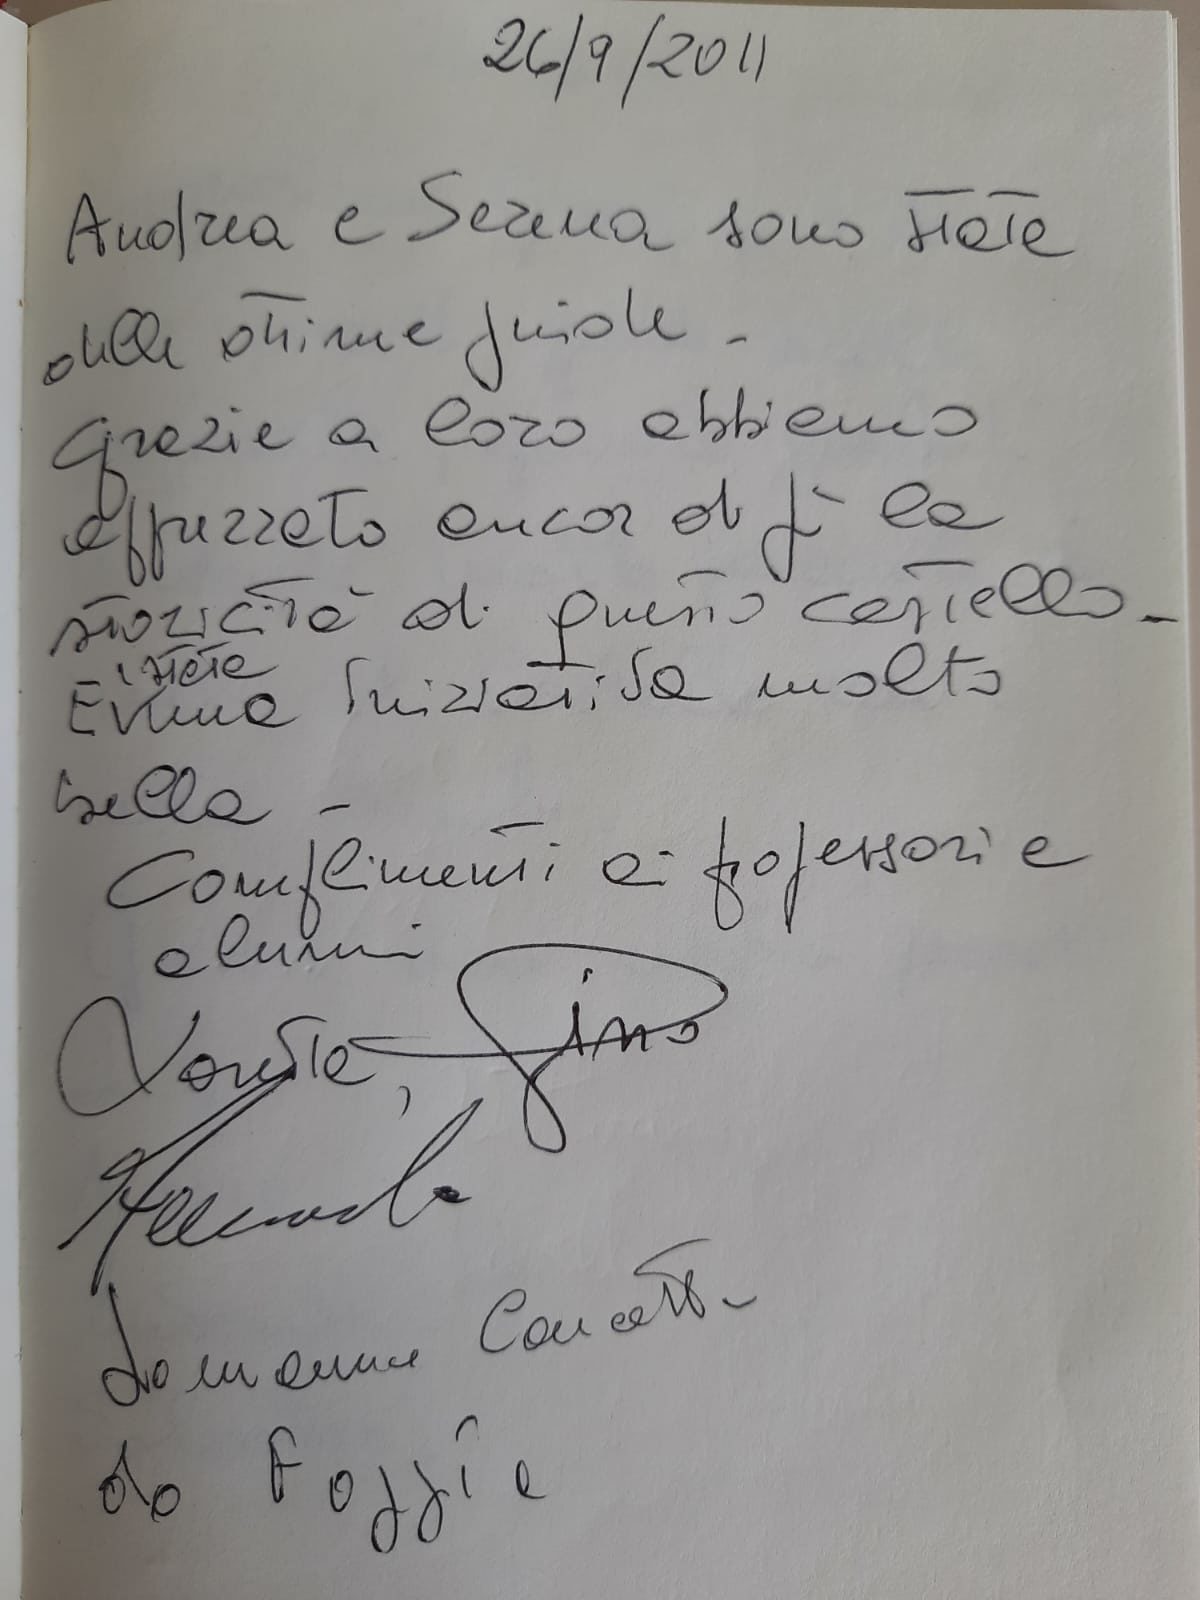 26/9/2011
Andrea e Serena sono state
delle ottime guide.
Grazie a loro abbiamo
apprezzato ancor di più la
storicità di questo castello.
È stata
una iniziativa molto
bella.
Complimenti ai professori e
alunni
Loretta, Gino
da Foggia